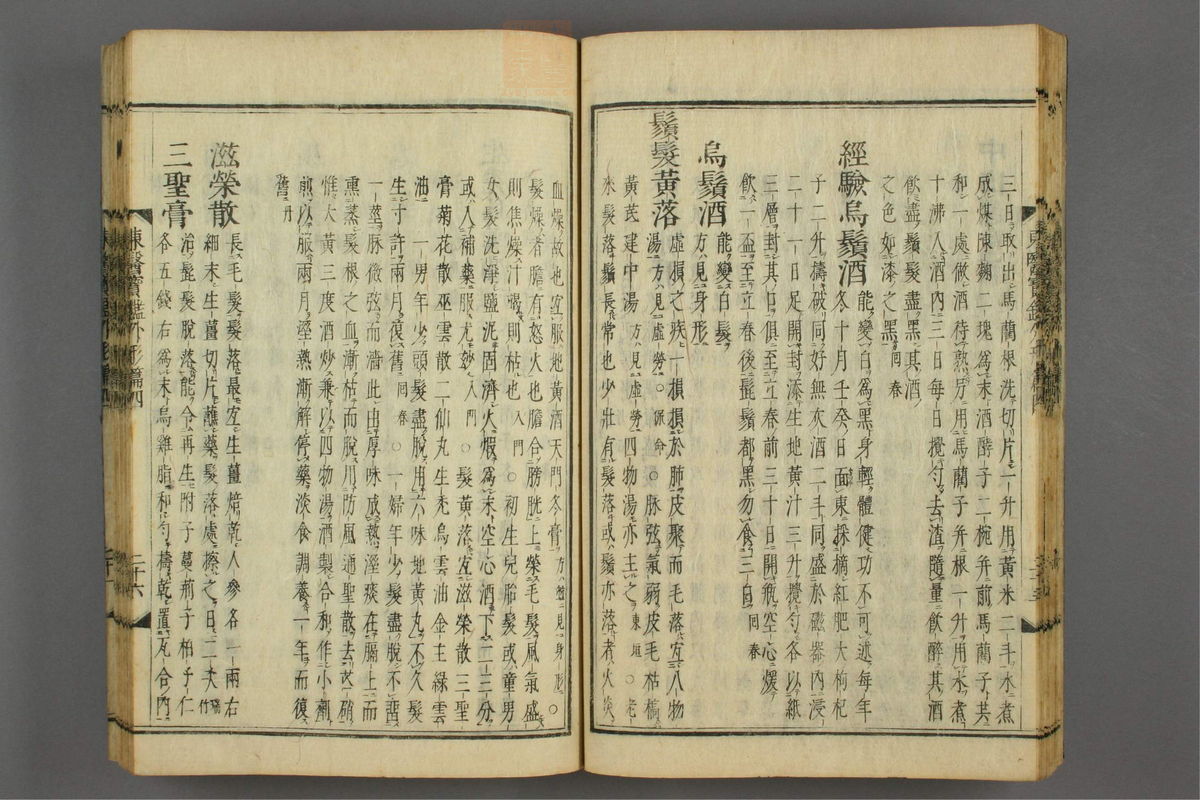 三日取出馬蘭根洗切片一升用黃米二斗水煮
成煤陳麴二塊爲末酒酵子二椀并前馬蘭子共
和一處做酒待熟另用馬蘭子并根一升用水煮
十沸入酒內三日每日攪勻去渣隨量飮醉其酒
飮盡鬚髮盡黑其酒
之色如漆之黑 回春
經驗烏鬚酒 能變白爲黑身輕體健功不可述每年
冬十月壬癸日面東採摘紅肥大枸杞
子二升擣破同好無灰酒二斗同盛於磁器內浸
二十一日足開封添生地黃汁三升攪勻各以紙
三層封其口俱至立春前三十日開甁空心煖
飮一盃至立春後髭鬚都黑勿食三白 回春
烏鬚酒 能變白髮
方見身形
鬚髮黃落 虛損之疾一損損於肺皮聚而毛落宜八物
湯方見虛勞○脉弦氣弱皮毛枯槁
黃芪建中湯方見虛勞四物湯亦主之東垣○老
來髮落鬚長常也少壯有髮落或鬚亦落者火炎
血燥故也宜服地黃酒天門冬膏方並見身形○
髮燥者膽有怒火也膽合膀胱上榮毛髮風氣盛
則焦燥汁竭則枯也入門○初生兒胎髮或童男
女髮洗淨鹽泥固濟火煆爲末空心酒下二三分
或入補藥服尤妙入門○髮黃落宜滋榮散三聖
膏菊花散巫雲散二仙丸生禿烏雲油金主綠雲
油 一男年少頭髮盡脫用六味地黃丸不久髮
生寸許兩月復舊回春○一婦年少髮盡脫不留
一莖脉微弦而濇此由厚味成熱溼痰在膈上而
熏蒸髮根之血漸枯而脫用防風通聖散去芒硝
惟大黃三度酒炒兼以四物湯酒製合和作小劑
煎以服兩月溼熱漸解停藥淡食調養一年而復
舊丹
滋榮散 長毛髮髮落最宜生薑焙乾人參各一兩右
細末生薑切片蘸藥髮落處擦之日二夫瑞竹
三聖膏 治髭髮脫落能令再生附子蔓荊子柏子仁
各五錢右爲末烏雞脂和勻擣乾置瓦合內
東醫寶鑑外形篇四
二十六